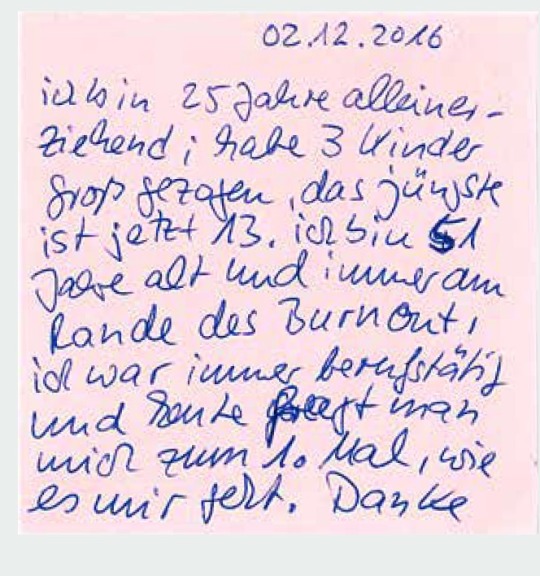 02.12.2016
ich bin 25 Jahre alleiner-
ziehend; habe 3 Kinder
groß gezogen, das jüngste
ist jetzt 13. ich bin 51
Jahre alt und immer am
Rande des Burnout,
ich war immer berufstätig
und heute fragt man
mich zum 1. Mal, wie
es mir geht. Danke